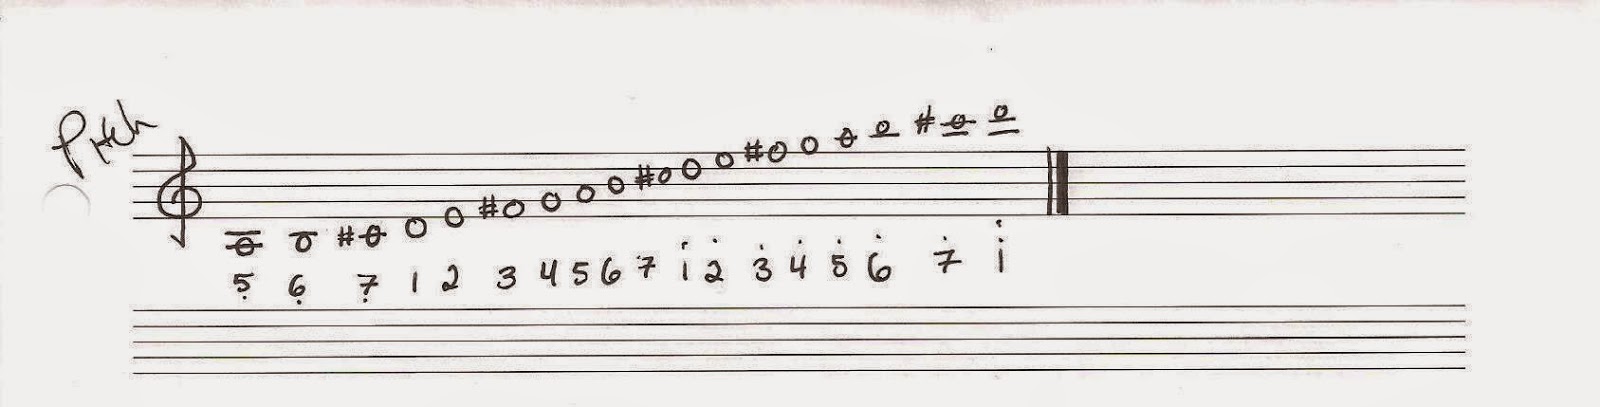 Pitch
5̣ 6̣ 7̣ 1 2 3 4 5 6 7 1̇ 2̇ 3̇ 4̇ 5̇ 6̇ 7̇ 1̇̇